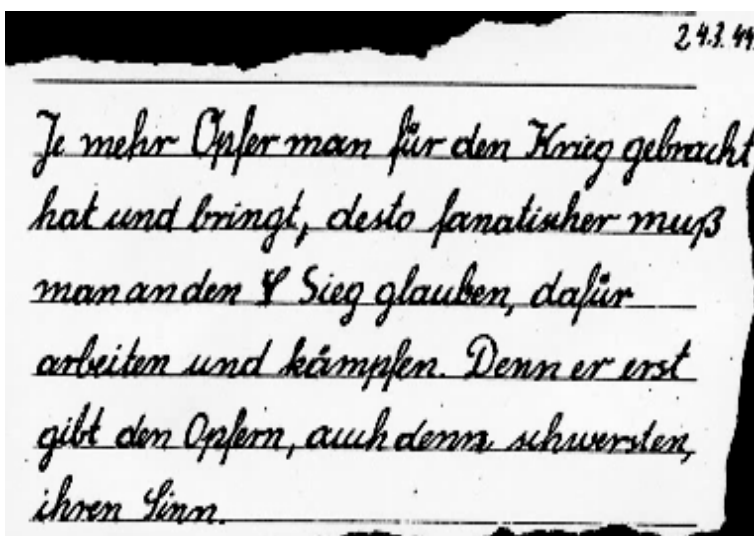 24.3.44.
Je mehr Opfer man für den Krieg gebracht
hat und bringt, desto fanatischer muß
man an den Sieg glauben, dafür
arbeiten und kämpfen. Denn er erst
gibt den Opfern, auch denn schwersten,
ihren Sinn.